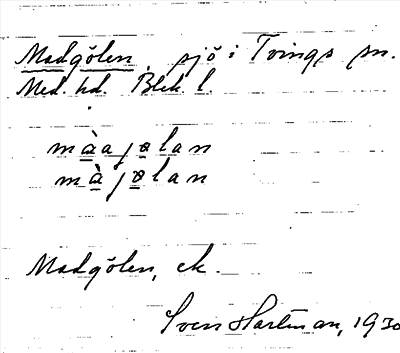 Madgölen, sjö i Tvings sn.
Med. hd. Blek. l.
màajølan
màjølan
Madgölen, ek.
Sven Hartman, 1930